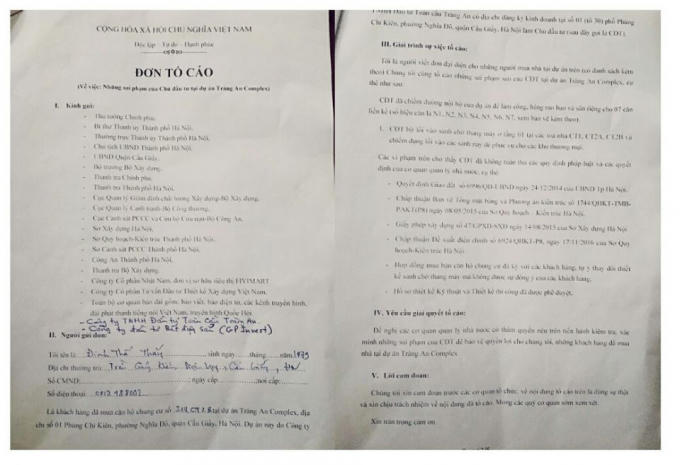 CỘNG HÒA XÃ HỘI CHỦ NGHĨA VIỆT NAM
Độc lập - Tự do - Hạnh phúc
ĐƠN TỐ CÁO
(Về việc: Những sai phạm của Chủ đầu tư tại dự án Tràng An Complex)
I. Kính gửi:
- Thủ tướng Chính phủ.
- Bí thư Thành ủy Thành phố Hà Nội.
- Thường trực Thành ủy Thành phố Hà Nội.
- Chủ tịch UBND Thành phố Hà Nội.
- UBND Quận Cầu Giấy.
- Bộ trưởng Bộ Xây dựng.
- Thanh tra Chính phủ.
- Thanh tra Thành phố Hà Nội.
- Cục Quản lý Giám định chất lượng Xây dựng-Bộ Xây dựng.
- Cục Quản lý Cạnh tranh-Bộ Công thương.
- Cục Cảnh sát PCCC và Cứu hộ Cứu nạn-Bộ Công An.
- Sở Xây dựng Hà Nội.
- Sở Quy hoạch-Kiến trúc Thành phố Hà Nội.
- Sở Cảnh sát PCCC Thành phố Hà Nội.
- Công An Thành phố Hà Nội.
- Thanh tra Bộ Xây dựng.
- Công ty Cổ phần Nhất Nam, đơn vị sở hữu siêu thị FIVIMART
- Công ty Cổ phần Tư vấn Đầu tư Thiết kế Xây dựng Việt Nam.
- Toàn bộ cơ quan báo đài gồm: báo viết, báo điện tử, các kênh truyền hình, đài phát thanh tiếng nói Việt Nam, truyền hình Quốc Hội.
- Công ty TNHH Đầu tư Toàn Cầu Tràng An.
- Công ty đầu tư Bất động sản (GP Invest)
II. Người gửi đơn:
Tôi tên là: Đinh Thế sinh ngày tháng năm 1979
Địa chỉ thường trú: Cầu Giấy, HN
Số CMND: ngày cấp nơi cấp:
Số điện thoại: 0912 488002
Là khách hàng đã mua căn hộ chung cư số tại dự án Tràng An Complex, địa
chỉ số 01 Phùng Chí Kiên, phường Nghĩa Đô, quận Cầu Giấy, Hà Nội. Dự án này do Công ty
TNHH Đầu tư Toàn cầu Tràng An có địa chỉ đăng ký kinh doanh tại số 01 (tổ 30) phố Phùng
Chí Kiên, phường Nghĩa Đô, quận Cầu Giấy, Hà Nội làm Chủ đầu tư (sau đây gọi là CĐT).
III. Giải trình sự việc tố cáo:
Tôi là người viết đơn đại diện cho những người mua nhà tại dự án trên (có danh sách kèm
theo) Chúng tôi cùng tố cáo những sai phạm sau của CĐT tại dự án Tràng An Complex, cụ
thể như sau:
CĐT đã chiếm đường nội bộ của dự án để làm cổng, hàng rào bao và sân riêng cho 07 căn
liền kề (số hiệu căn là N1, N2, N3, N4, N5, N6, N7, xem bản vẽ kèm theo).
1. CĐT bịt lối vào sảnh chờ thang máy ở tầng 01 tại các tòa nhà CT1, CT2A, CT2B và
chiếm dụng lối vào các sảnh này để phục vụ cho các khu thương mại.
Các vi phạm trên cho thấy CĐT đã không tuân thủ các quy định pháp luật và các quyết
định của cơ quan quản lý nhà nước, cụ thể:
- Quyết định Giao đất số 6996/QĐ-UBND ngày 24/12/2014 của UBND Tp Hà Nội.
- Chấp thuận Bản vẽ Tổng mặt bằng và Phương án kiến trúc số 1744/QHKT-TMB-
PAKT(P8) ngày 08/05/2015 của Sở Quy hoạch - Kiến trúc Hà Nội.
- Giấy phép xây dựng số 47/GPXD-SXD ngày 14/08/2015 của Sở Xây dựng Hà Nội
- Chấp thuận Đề xuất điều chỉnh số 6924/QHKT-P8, ngày 17/11/2016 của Sở Quy
hoạch-Kiến trúc Hà Nội.
- Hợp đồng mua bán căn hộ chung cư đã ký với các khách hàng, tự ý thay đổi thiết
kế sảnh chờ thang máy mà không được sự đồng ý của các khách hàng.
- Hồ sơ thiết kế Kỹ thuật và Thiết kế thi công đã được phê duyệt.
IV. Yêu cầu giải quyết tố cáo:
Đề nghị các cơ quan quản lý nhà nước có thẩm quyền nêu trên tiến hành kiểm tra, xác
minh những sai phạm của CĐT để bảo vệ quyền lợi cho chúng tôi, những khách hàng đã mua
nhà tại dự án Tràng An Complex
V. Lời cam đoan:
Chúng tôi xin cam đoan trước các cơ quan tổ chức, về nội dung tố cáo trên là đúng sự thật
và xin chịu trách nhiệm về nội dung đã tố cáo. Mong các quý cơ quan sớm xem xét.
Xin trân trọng cảm ơn.